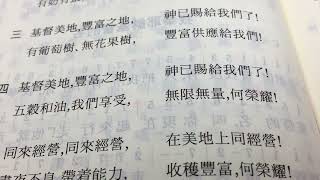 三 基督美地,豐富之地, 神已賜給我們了!
有葡萄樹、無花果樹, 豐富供應給我們!
四 基督美地,豐富之地, 神已賜給我們了!
五穀和油,我們享受, 無限無量,何榮耀!
同來經營,同來經營, 在美地上同經營!
晝夜不息,帶着能力, 收穫豐富,何榮耀!